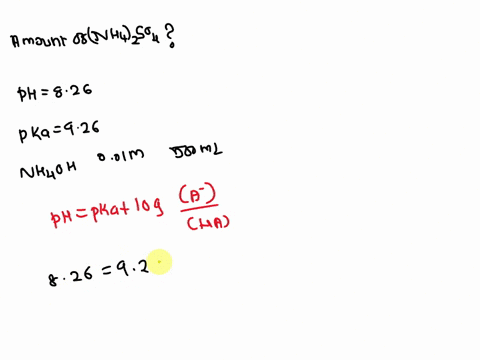 Amount of (NH4)2SO4?
pH = 8.26
pKa = 9.26
NH4OH 0.01M 500mL
pH = pKa + log (A-)/(HA)
8.26 = 9.2